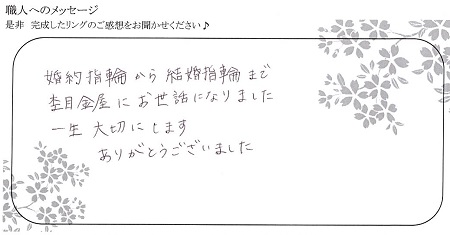 職人へのメッセージ
是非 完成したリングのご感想をお聞かせください♪
婚約指輪から結婚指輪まで
杢目金屋にお世話になりました
一生大切にします
ありがとうございました